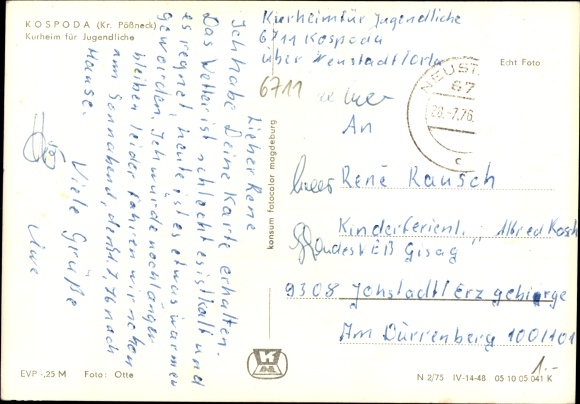 KOSPODA (Kr. Pößneck)
Kurheim für Jugendliche
Kurheim für Jugendliche
6711 Kospoda
über Neustadt/Orla
6711
Echt Foto
NEUST
67
28.-7.76
c
An
René Rausch
Kinderferienl. "Alfred Kosch
9308 Jöhstadt/Erzgebierge
Am Dürrenberg 100/101
Lieber Rene
Ich habe Deine Karte erhalten.
Das Wetter ist schlecht es ist kalt und
es regnet, heute ist es etwas wärmer
geworden. Ich würde noch länger
bleiben leider fahren wir schon
am Sonnabend, den 31.7.76 nach
Hause.
Viele Grüße
Uwe
konsum fotocolor magdeburg
EVP -,25 M Foto: Otte
N 2/75 IV-14-48 05 10 05 041 K
1.-